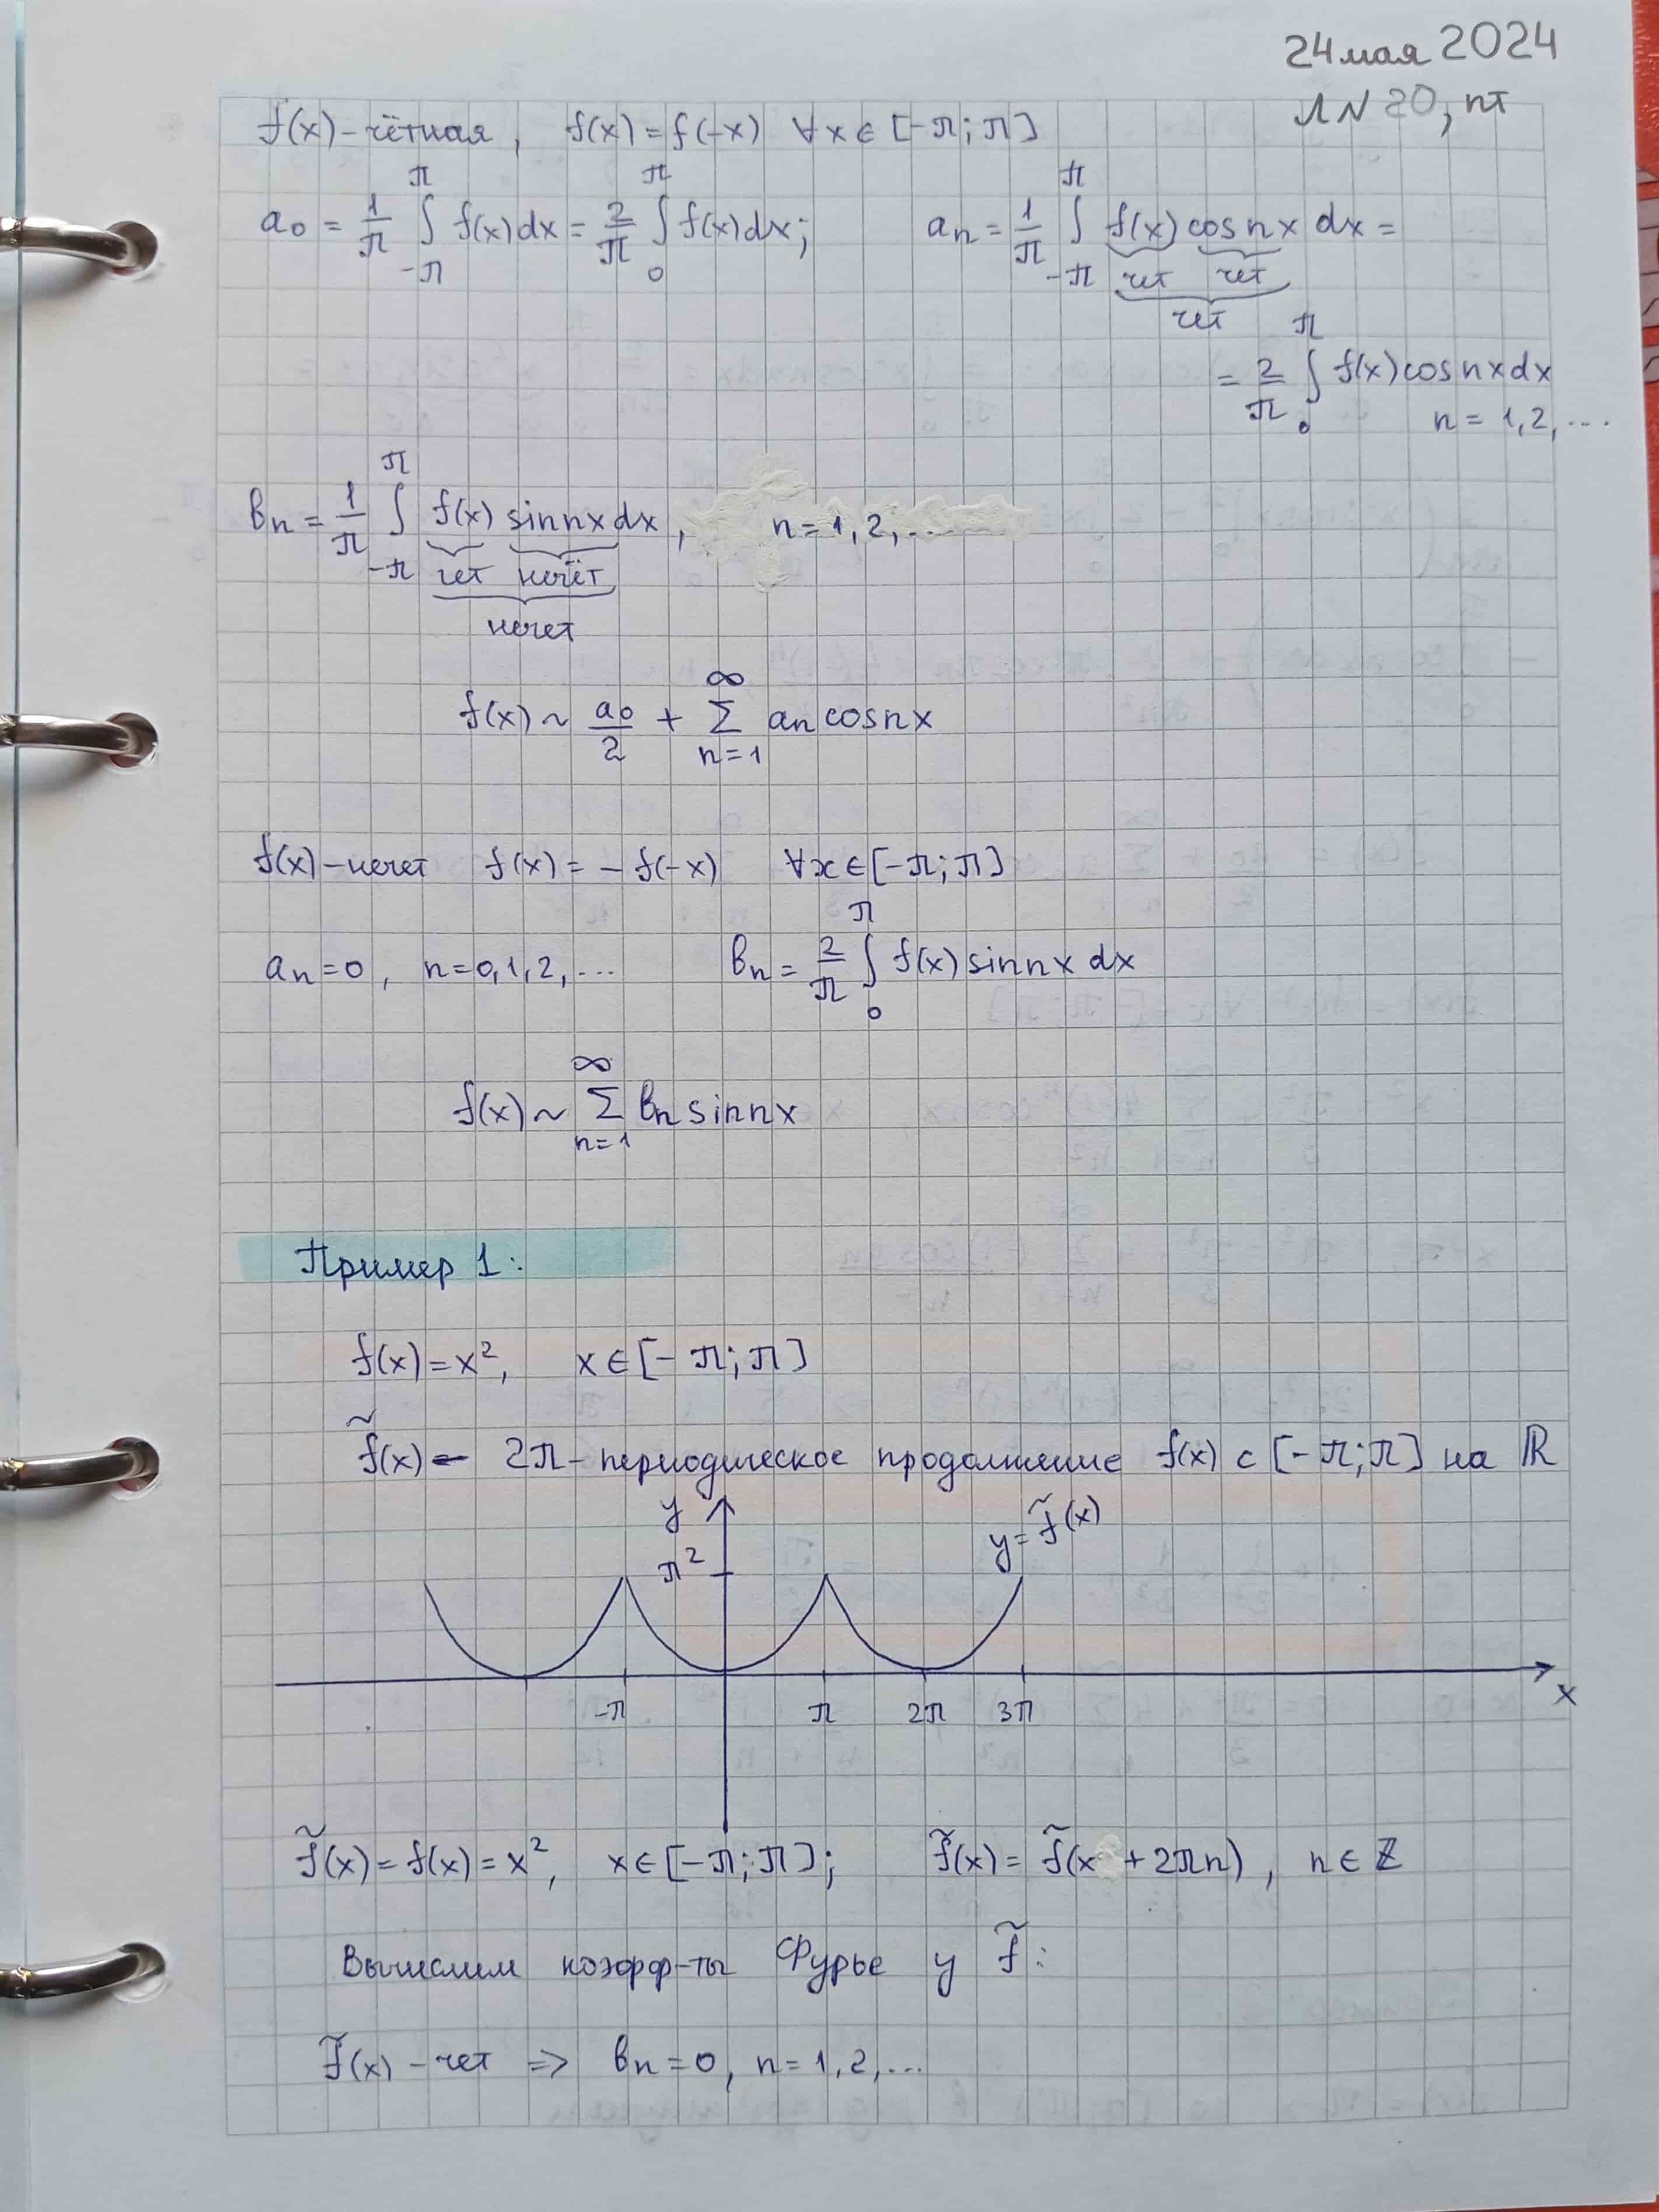 24 мая 2024
Л N 20, пт
f(x) – чётная, f(x) = f(-x) ∀x ∈ [-π; π]
a₀ = 1/π ∫_{-π}^{π} f(x)dx = 2/π ∫_0^π f(x)dx; aₙ = 1/π ∫_{-π}^{π} f(x) cos nx dx =
чет чет
чет
= 2/π ∫_0^π f(x) cos nx dx
n = 1, 2, ...
bₙ = 1/π ∫_{-π}^{π} f(x) sin nx dx, n = 1, 2, ...
чет нечёт
нечет
f(x) ~ a₀/2 + Σ_{n=1}^{∞} aₙ cos nx
f(x) – нечет f(x) = – f(-x) ∀x ∈ [-π; π]
aₙ = 0, n = 0, 1, 2, ... bₙ = 2/π ∫_0^π f(x) sin nx dx
f(x) ~ Σ_{n=1}^{∞} bₙ sin nx
Пример 1:
f(x) = x², x ∈ [-π; π]
f̃(x) – 2π – периодическое продолжение f(x) с [-π; π] на ℝ
y
y = f̃(x)
π²
-π π 2π 3π
x
f̃(x) = f(x) = x², x ∈ [-π; π]; f̃(x) = f̃(x + 2πn), n ∈ ℤ
Вычислим коэфф-ты Фурье у f̃:
f̃(x) – чет => bₙ = 0, n = 1, 2, ...